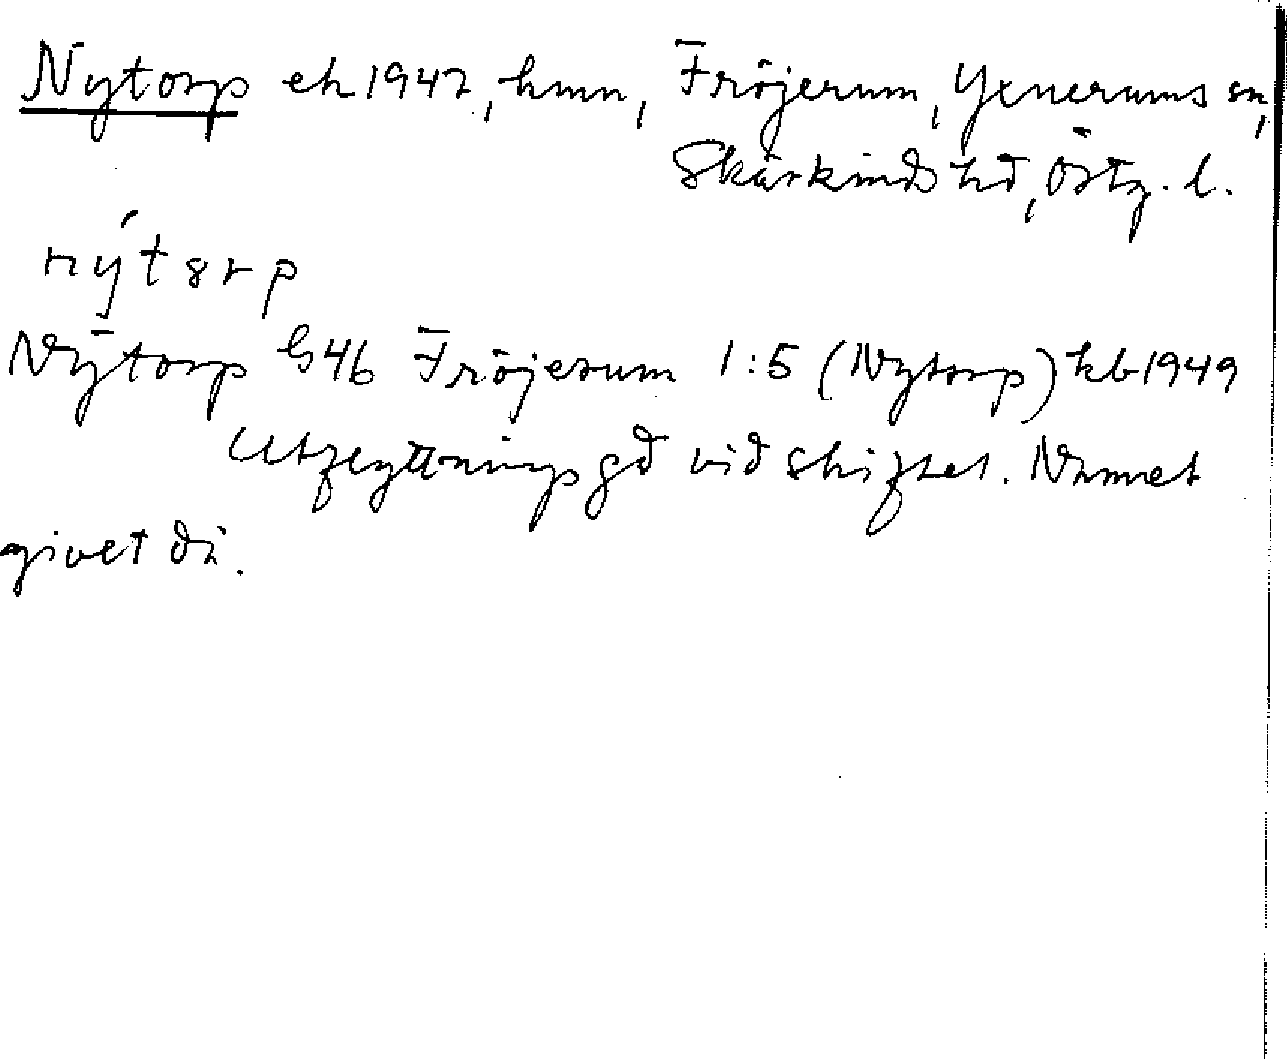 Nytorp ek 1947, hmn, Fröjerum, Yxnerums sn,
Skärkinds hd, Östg. l.
nýt8rp
Nytorp G46 Fröjerum 1:5 (Nytorp) kb 1949
Utflyttningsgd vid skiftet. Namnet
givet då.